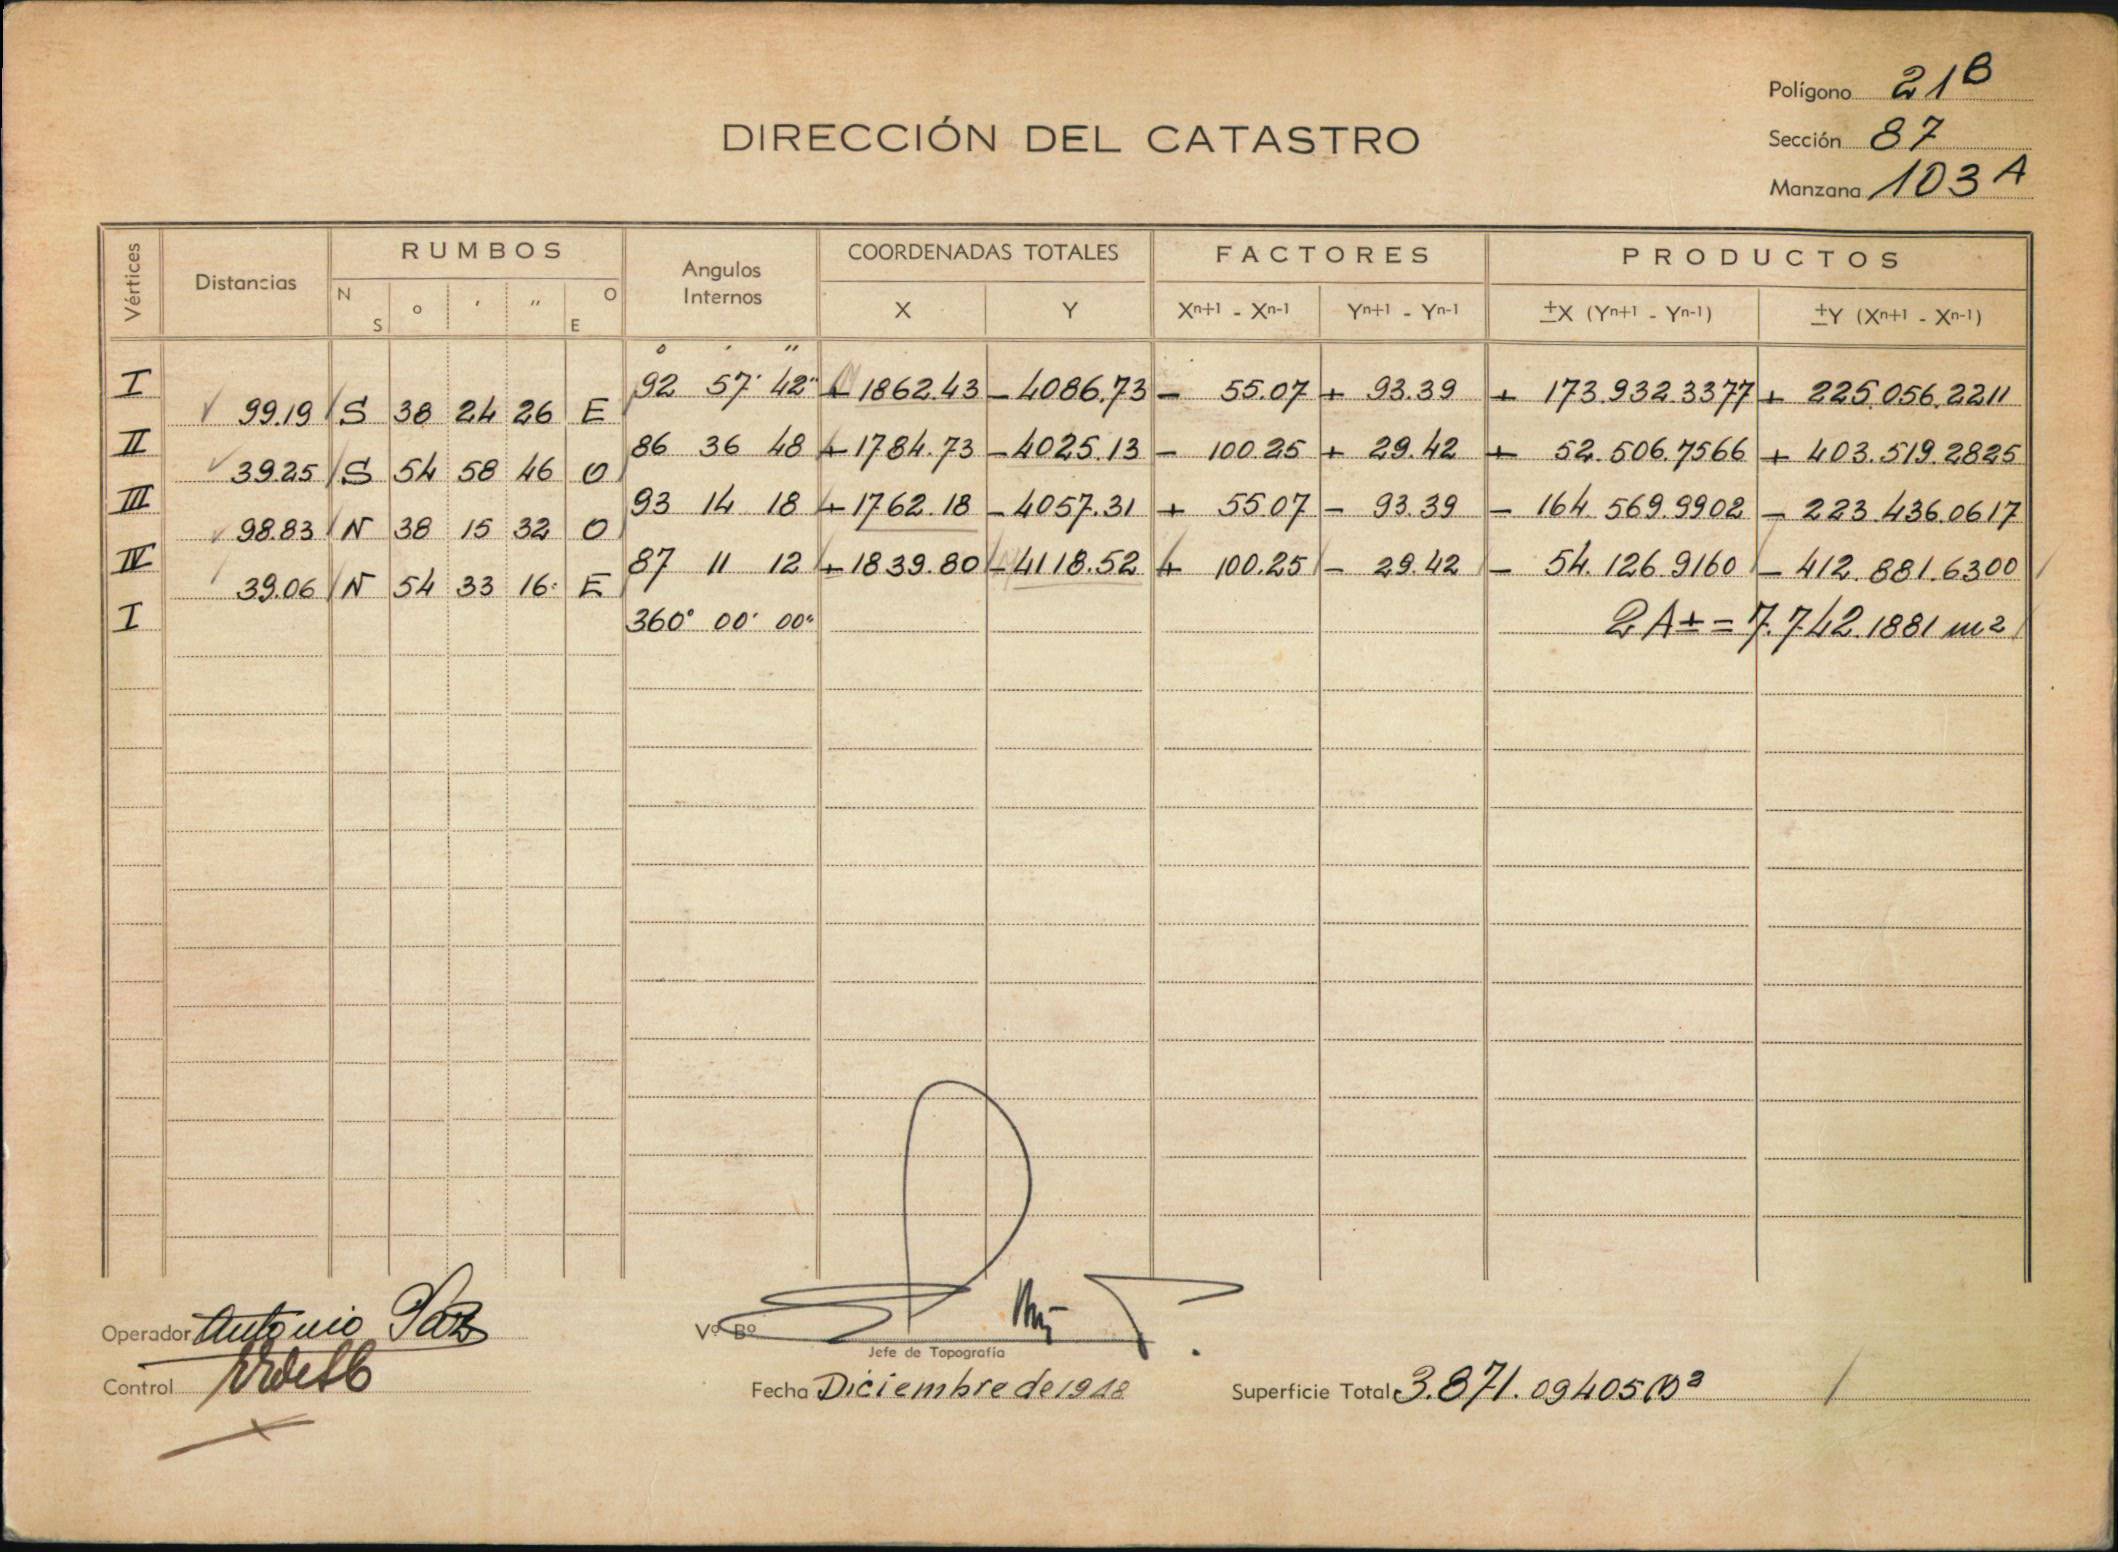 Polígono 21B
DIRECCIÓN DEL CATASTRO
Sección 87
Manzana 103A
Vértices Distancias RUMBOS Angulos Internos COORDENADAS TOTALES FACTORES PRODUCTOS
N S ° ' " O E X Y Xn+1 - Xn-1 Yn+1 - Yn-1 ±X (Yn+1 - Yn-1) ±Y (Xn+1 - Xn-1)
° ' "
I 92 57' 42" + 1862.43 - 4086.73 - 55.07 + 93.39 + 173.932.3377 + 225.056.2211
99.19 S 38 24 26 E
II 86 36 48 + 1784.73 - 4025.13 - 100.25 + 29.42 + 52.506.7566 + 403.519.2825
39.25 S 54 58 46 O
III 93 14 18 + 1762.18 - 4057.31 + 55.07 - 93.39 - 164.569.9902 - 223.436.0617
98.83 N 38 15 32 O
IV 87 11 12 + 1839.80 - 4118.52 + 100.25 - 29.42 - 54.126.9160 - 412.881.6300
39.06 N 54 33 16 E
I 360° 00' 00" 2A± = 7.742.1881 m2
Operador Antonio Paz
Vº Bº
Jefe de Topografía
Control
Fecha Diciembre de 1948
Superficie Total 3.871.09405 m2